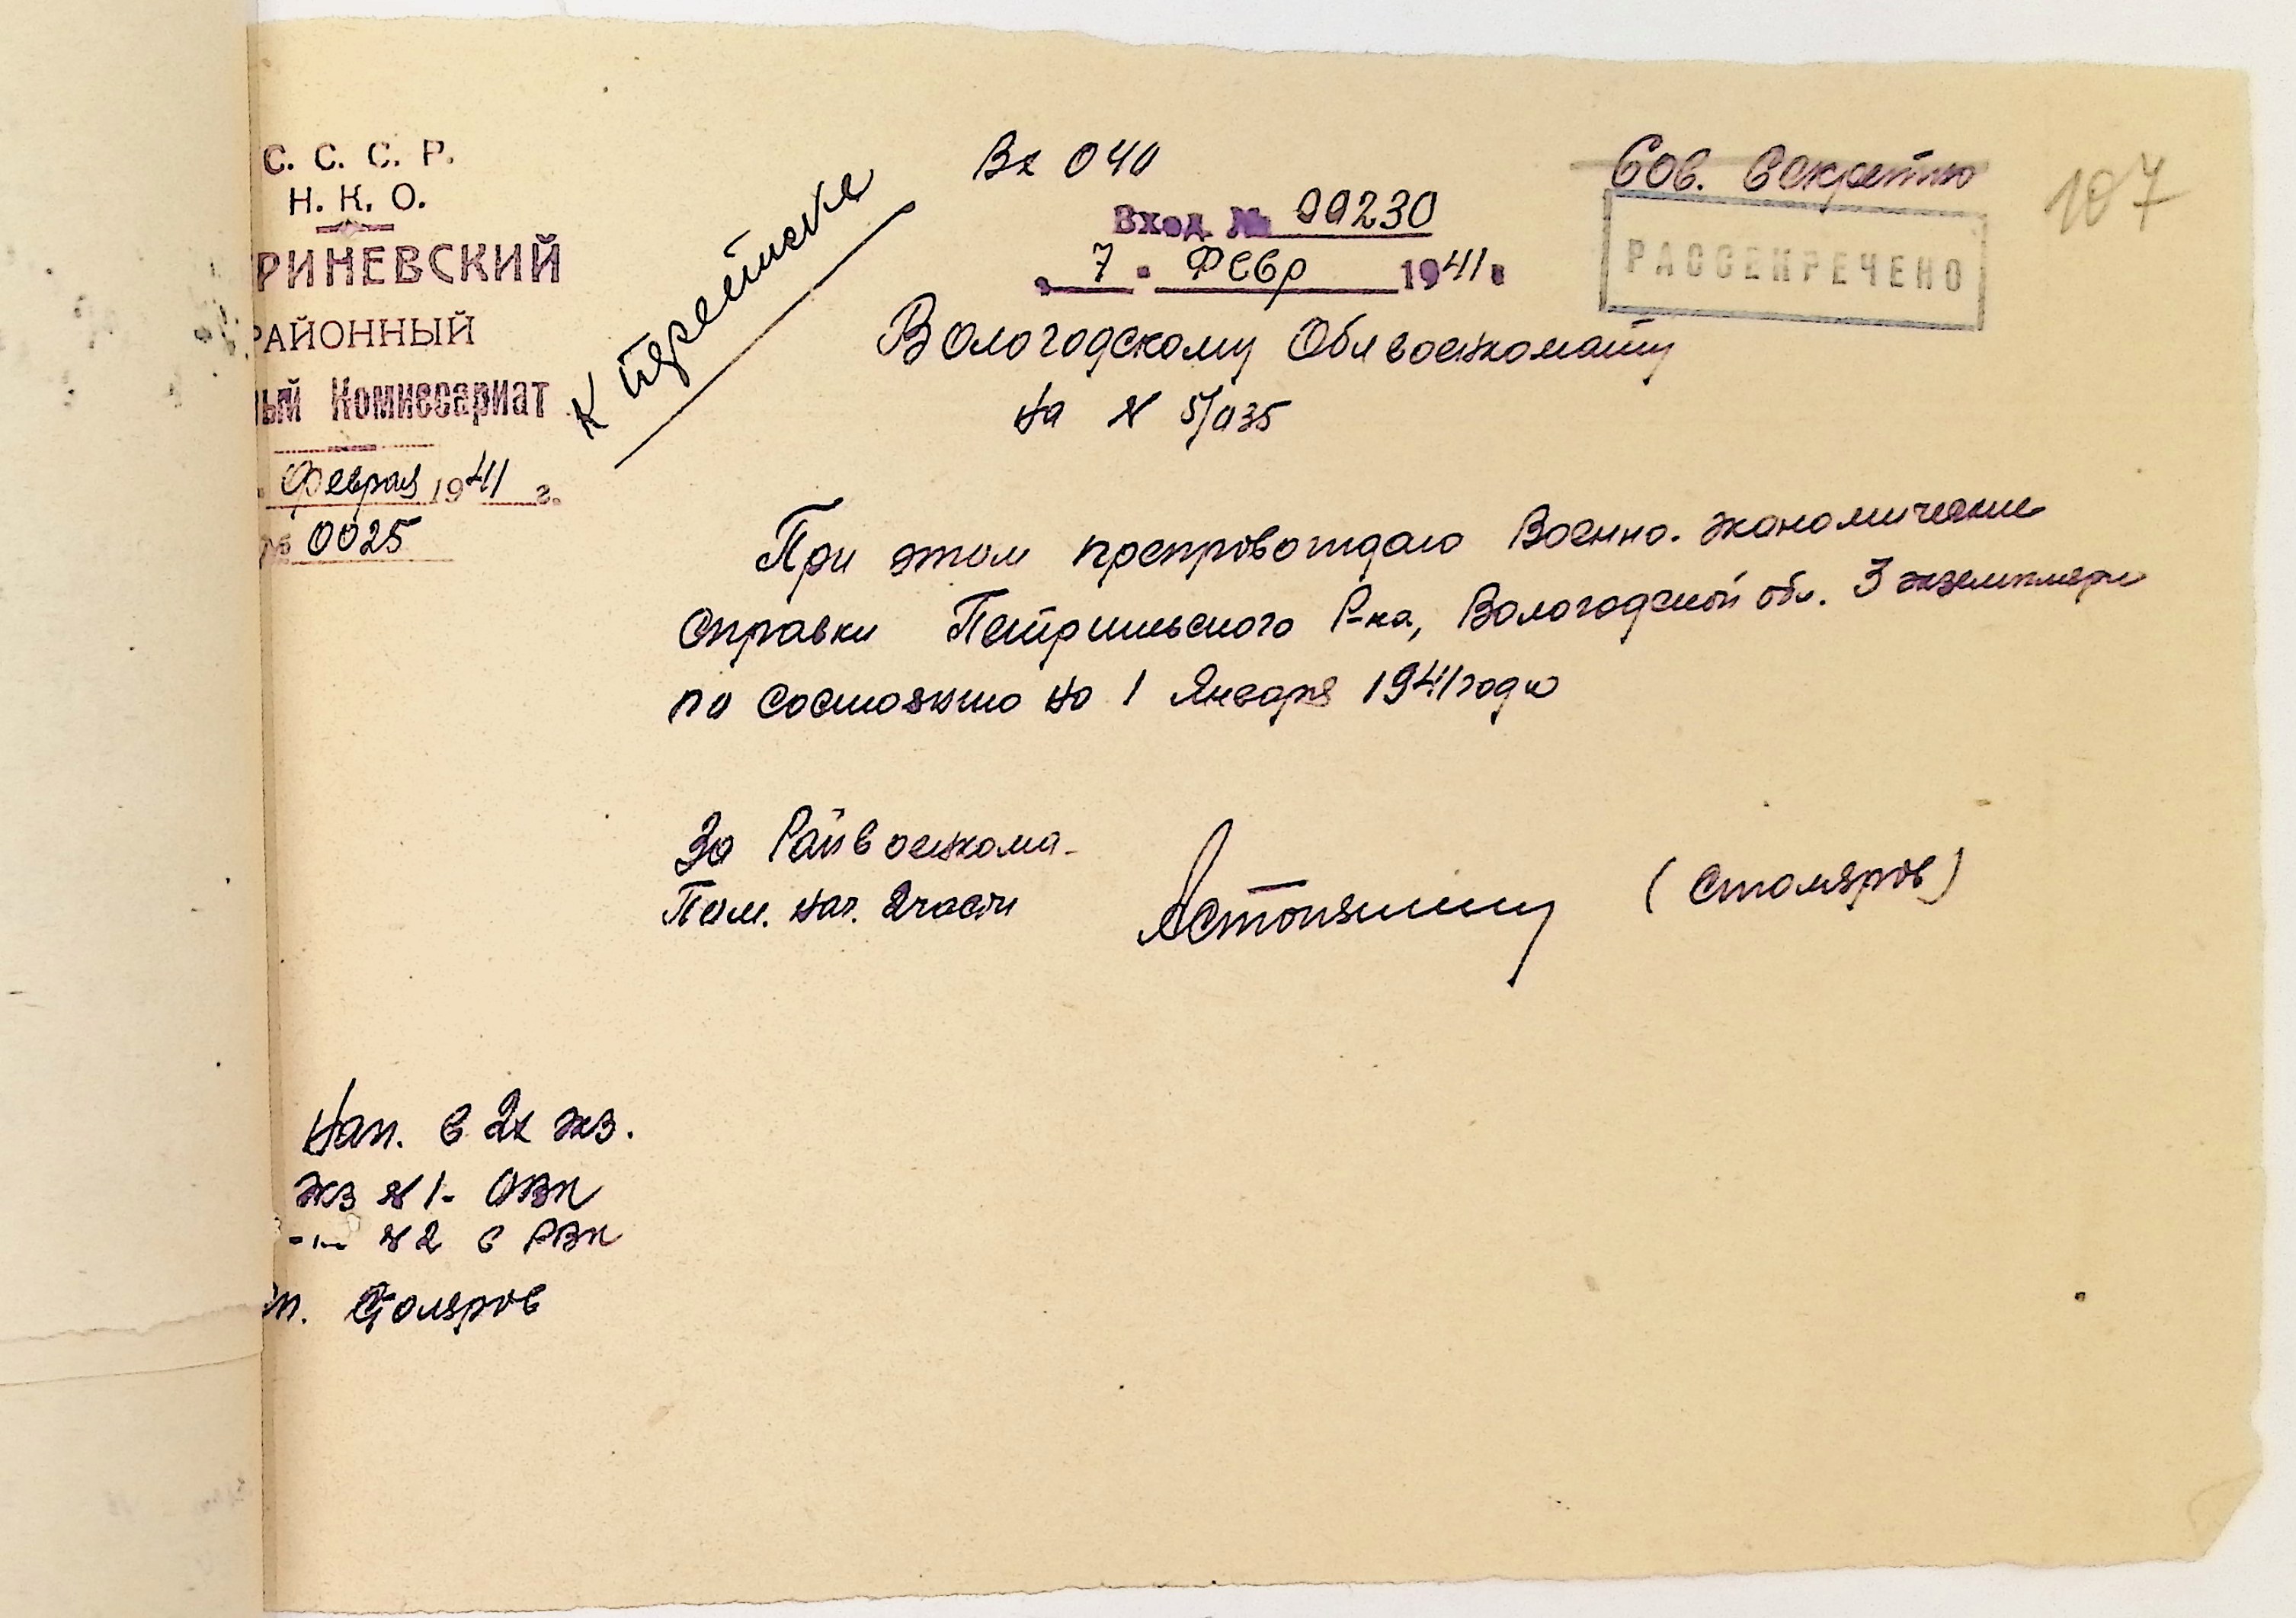 С. С. С. Р.
Н. К. О.
РИНЕВСКИЙ
РАЙОННЫЙ
ый Комиссариат
Февраля 1941 г.
№ 0025
К переписке
Вх 040
Вход № 00230
„7" Февр 1941 г
Сов. Секретно
РАССЕКРЕЧЕНО
107
Вологодскому Облвоенкомату
на № 5/035
При этом препровождаю Военно-экономические
справки Петриневского Р-на, Вологодской обл. 3 экземпляра
по состоянию на 1 Января 1941 года
За Райвоенкома -
Пом. нач. 2 части
(Столяров)
Нап. в 2х экз.
экз № 1 - ОВК
-"- № 2 в РВК
п. Столяров